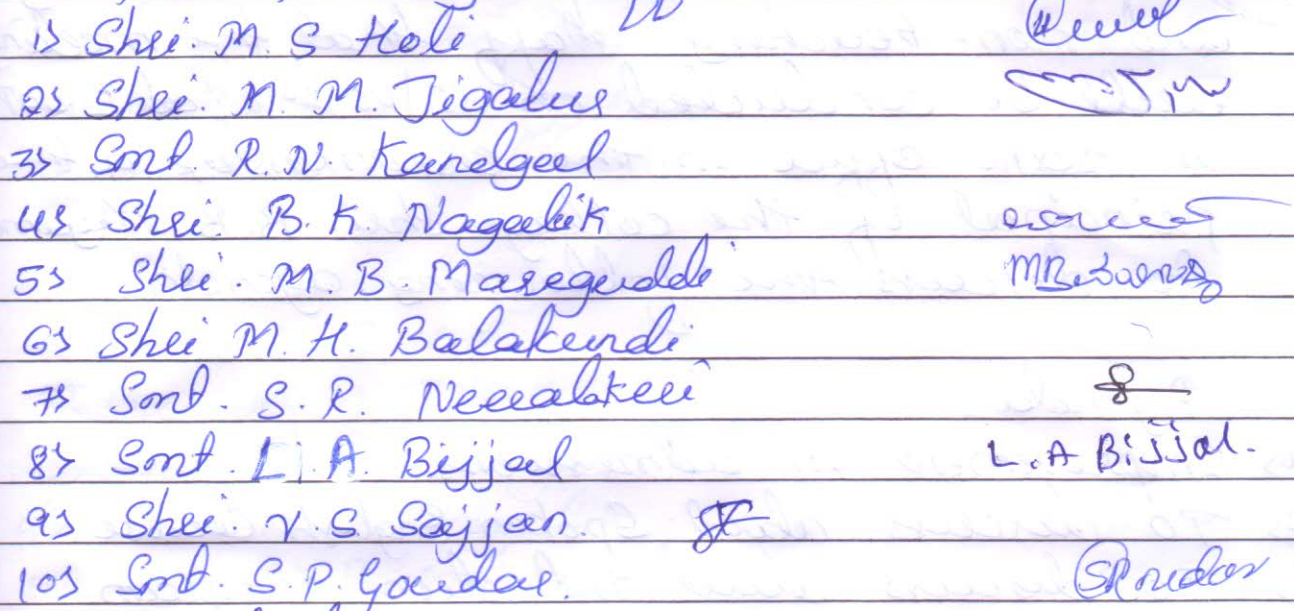 1) Shri. M. S Holi
2) Shri. M. M. Jigalur
3) Smt. R. N. Kandgal
4) Shri. B. K. Nagalik
5) Shri. M. B. Maregudde
6) Shri M. H. Balakundi
7) Smt. S. R.
8) Smt. L. A. Bijjal L. A Bijjal.
9) Shri. V. S. Sajjan.
10) Smt. S. P. Goudar.